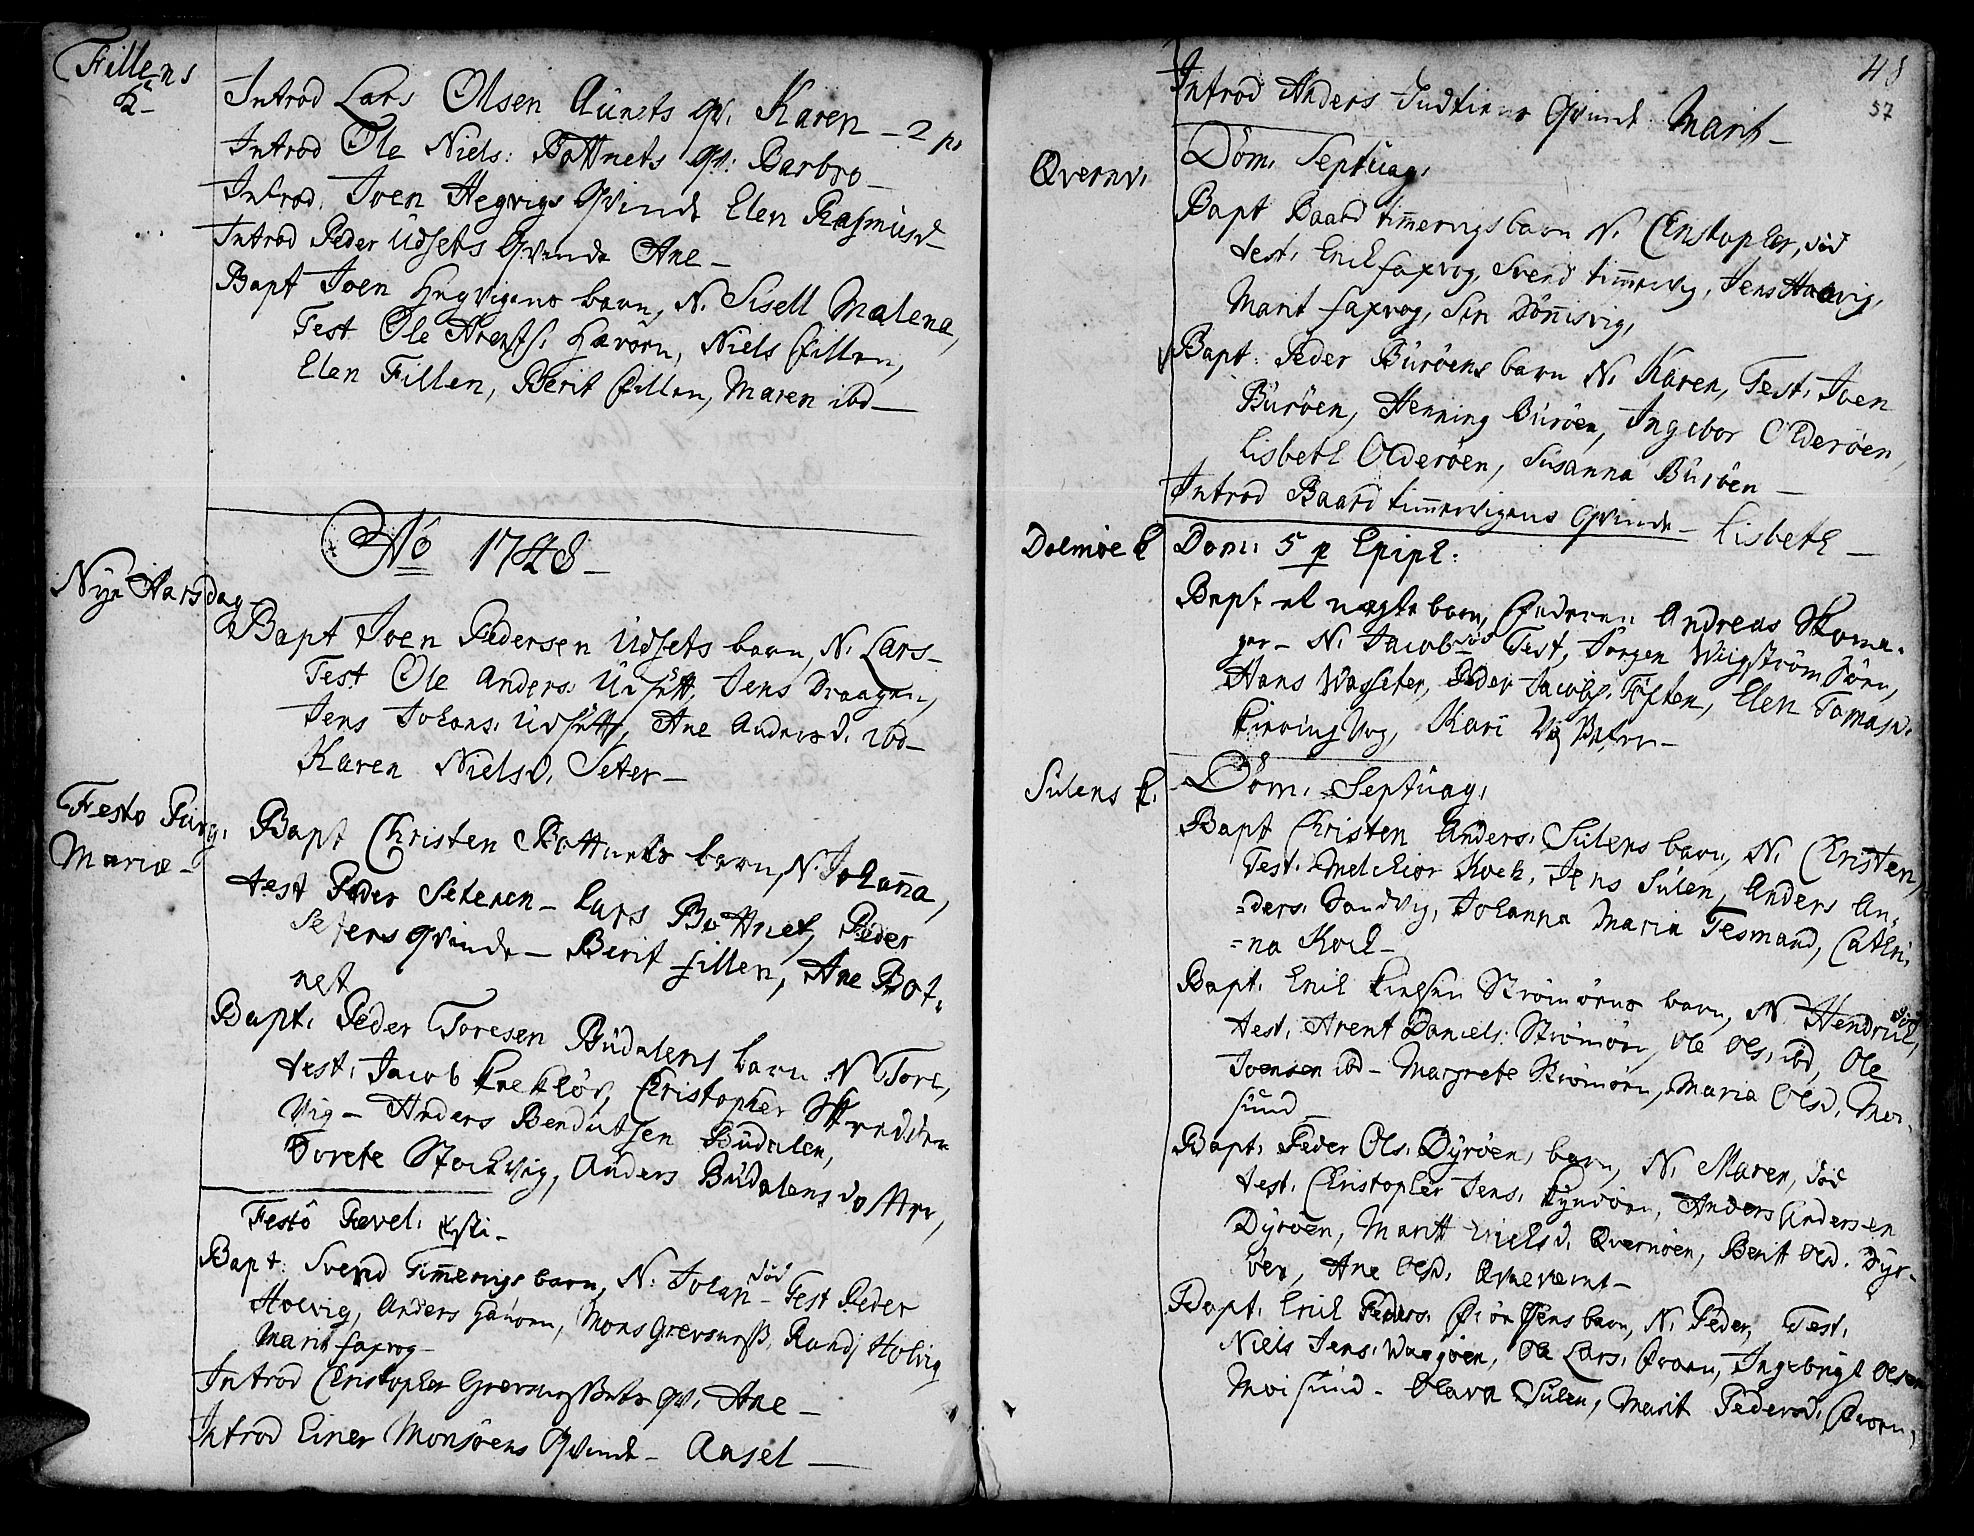 Fillens
k-
Introd Lars Olsen Aunets qv. Karen - 2 p.
Introd Ole Niels: Bottnets qv: Barbro -
Introd. Joen Hegvigs Qvinde Elen Rasmusd-
Introd Peder Udsets Qvinde Ane -
Bapt Joen Hegvigens barn, N. Sisell Malena,
Test Ole Arents. Havörn, Niels Fillen,
Elen Fillen, Berit Fillen, Maren ibd -
Ao 1748 -
Nye Aarsdag
Bapt Joen Pedersen Udsets barn, N. Lars -
Test Ole Anders. Udsett, Jens Draagen,
Jens Johans. Udsett, Ane Andersd. ibd -
Karen Nielsd. Seter -
Festo Purg.
Mariæ -
Bapt Christen Bottnets barn, N. Johanna,
test Peder Seteren - Lars Bottnet, Peder
Seters qvinde - Berit Fillen, Ane Bot-
net
Bapt. Peder Toresen Büdalens barn N Tore,
test. Jacob Kneklöv, Christopher Skredder
Vig - Anders Bendütsen Büdalen,
Dorete Stochvig, Anders Büdalens dotter,
Festo Pavel.
Bapt: Svend Timmervigs barn, N: Johan död - Test Peder
Holvig, Anders Havörn, Mons Grevsneß, Randj Holvig
Marit Faxvog -
Introd Christopher Grevsneßets qv. Ane -
Introd Einer Monsöens Qvinde - Aasel -
48
57
Introd Anders Qvinde Marit -
Qvernv.
Dom. Septuag.
Bapt Baard timmervigs barn N. Christopher, död
test. Erich Faxvog, Svend timmervig, Jens Holvig,
Marit Faxvog, Siri
Bapt: Peder Büröens barn N. Karen, Test. Joen
Büröen, Henning Büröen, Ingebor Olderöen,
Lisbeth Olderöen, Susanna Büröen -
Introd Baard timmervigens Qvinde - Lisbeth -
Dolmöe k
Dom. 5 p Epiph:
Bapt et uægte barn, Faderen: Andreas Skoma-
ger - N. Jacob död Test, Jörgen
Hans Wasseter, Peder Jacobs. Tuften, Elen Tomasd.
Kari
Sulens k.
Dom. Septuag.
Bapt Christen Anders. Sulens barn, N. Christen,
Test. Melchior Koch, Jens Sulen, Anders An-
=ders. Sandvig, Johanna Maria Tesmand, Cathri-
=na Koch -
Bapt. Erich Strömöens barn, N Hendrich, död
test. Arent Daniels: Strömön, Ole Ols. ibd, Ole
Joensen ibd - Margrete Strömön, Maria Olsd. Moi-
sund -
Bapt. Peder Ols. Dyröen, barn, N. Maren, död
test. Christopher Jens. Andersen
Dyröen, Maritt Nielsd. Qvernöen, Beritt Olsd. Dyr-
öen, Ane Olsd.
Bapt. Erich Peders. barn, N. Peder, Test.
Niels Jens. Waagöen, Ole Lars. Ingebrigt Olsen
Moisund - Olava Sulen, Marit Pedersd.